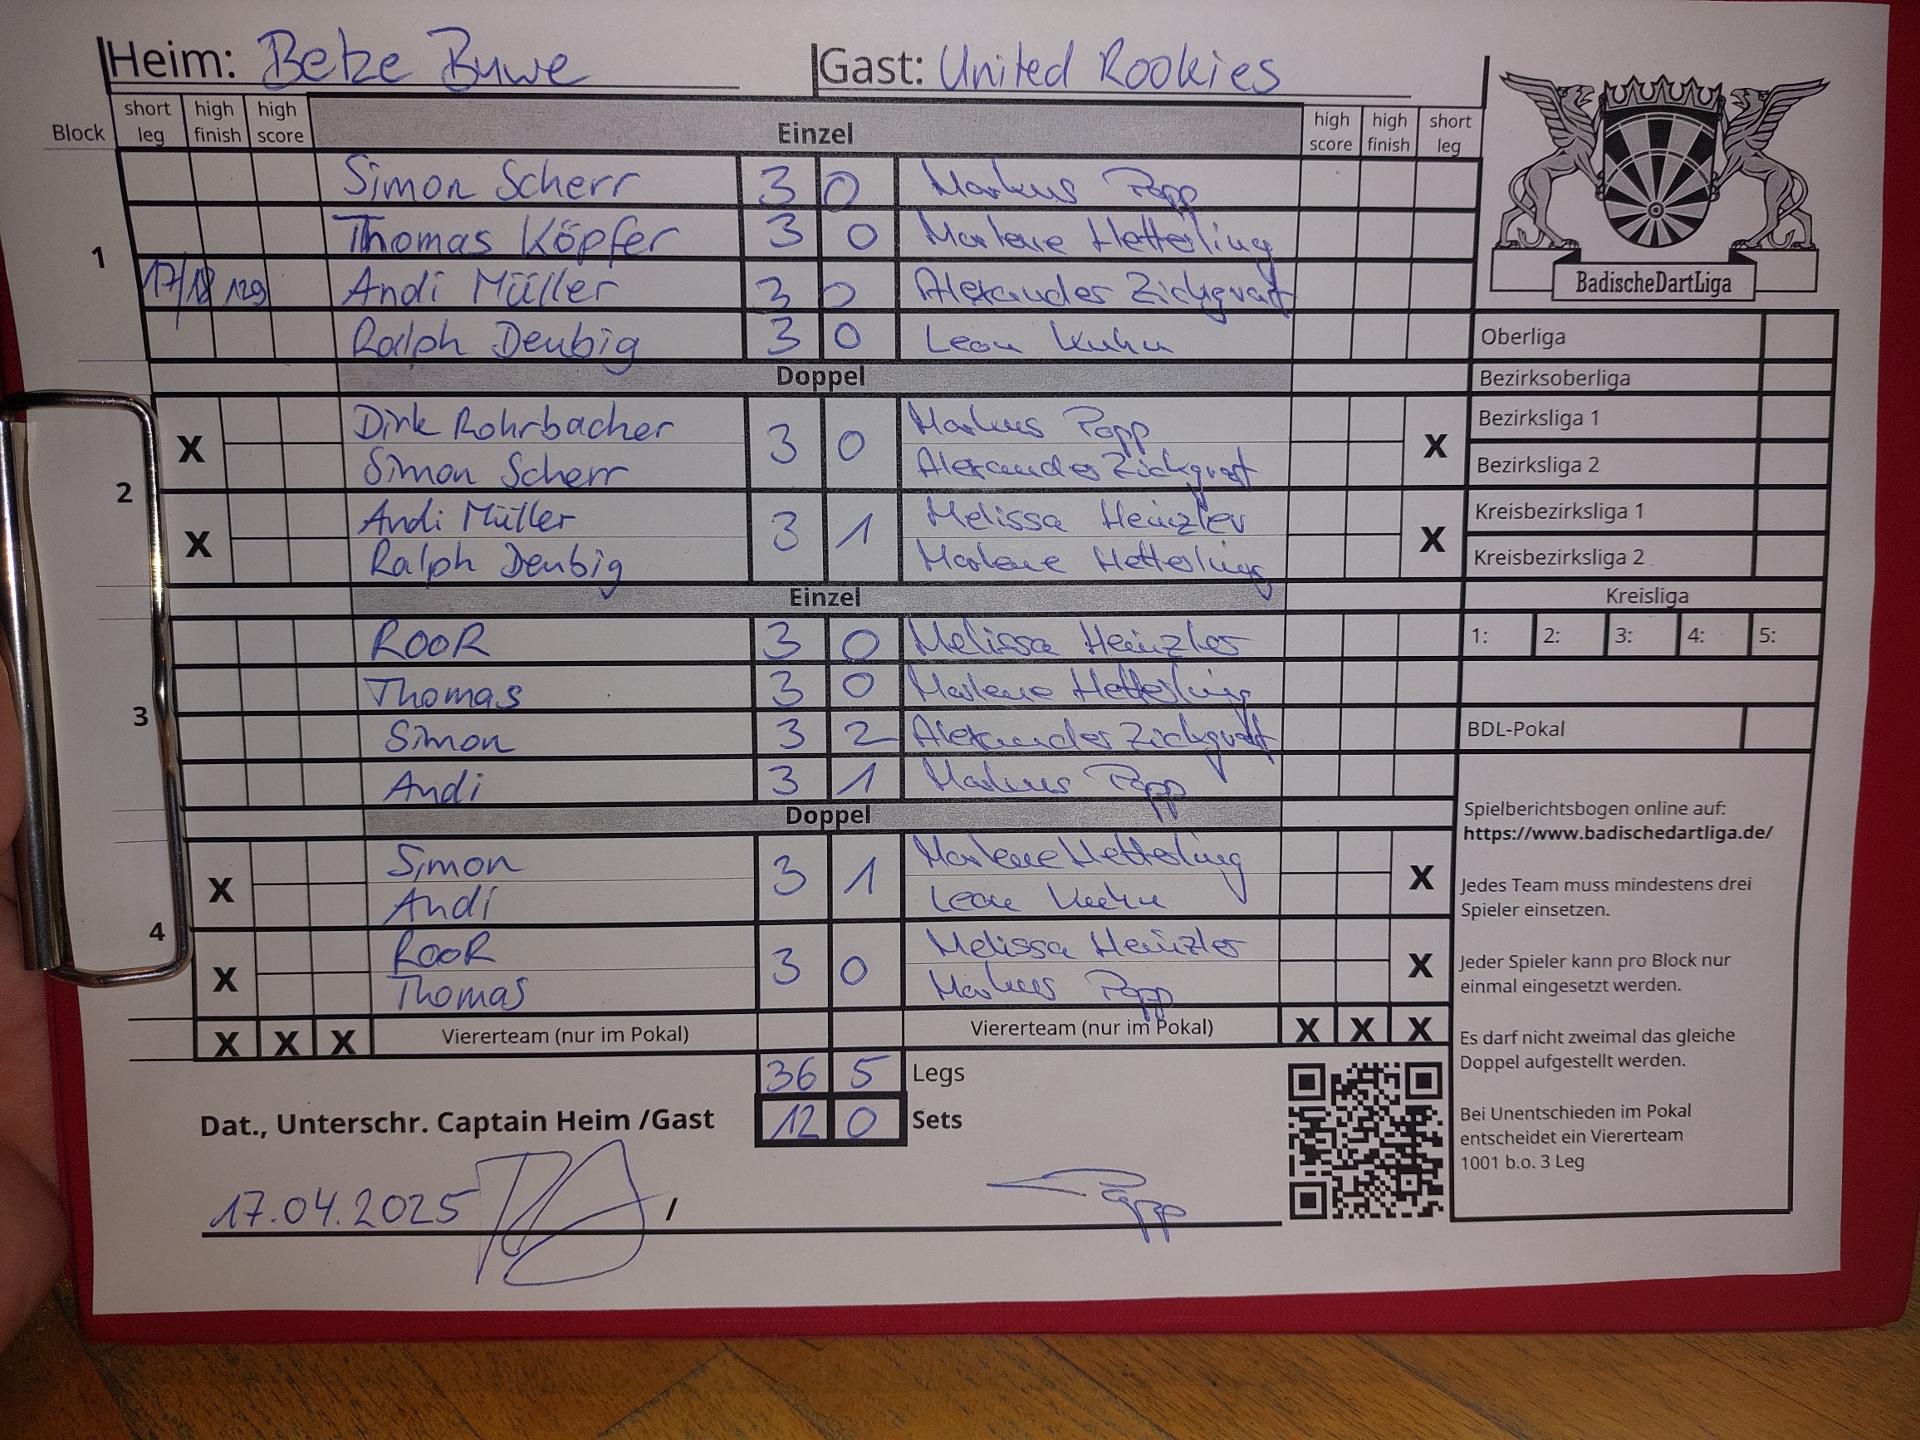 Heim: Betze Buwe Gast: United Rookies
Block short leg high finish high score Einzel high score high finish short leg
Simon Scherr 3 0 Markus Popp
1 Thomas Köpfer 3 0 Marlene Hetterling
17/18 129 Andi Müller 3 0 Alexander Zickgraf
Ralph Deubig 3 0 Leon Kuhn
Doppel
X Dirk Rohrbacher 3 0 Markus Popp X
Simon Scherr Alexander Zickgraf
2
X Andi Müller 3 1 Melissa Heinzler X
Ralph Deubig Marlene Hetterling
Einzel
RooR 3 0 Melissa Heinzler
Thomas 3 0 Marlene Hetterling
3 Simon 3 2 Alexander Zickgraf
Andi 3 1 Markus Popp
Doppel
X Simon 3 1 Marlene Hetterling X
Andi Leon Kuhn
4
X RooR 3 0 Melissa Heinzler X
Thomas Markus Popp
X X X Viererteam (nur im Pokal) Viererteam (nur im Pokal) X X X
36 5 Legs
Dat., Unterschr. Captain Heim /Gast 12 0 Sets
17.04.2025 / Popp
BadischeDartLiga
Oberliga
Bezirksoberliga
Bezirksliga 1
Bezirksliga 2
Kreisbezirksliga 1
Kreisbezirksliga 2
Kreisliga
1: 2: 3: 4: 5:
BDL-Pokal
Spielberichtsbogen online auf:
https://www.badischedartliga.de/
Jedes Team muss mindestens drei
Spieler einsetzen.
Jeder Spieler kann pro Block nur
einmal eingesetzt werden.
Es darf nicht zweimal das gleiche
Doppel aufgestellt werden.
Bei Unentschieden im Pokal
entscheidet ein Viererteam
1001 b.o. 3 Leg